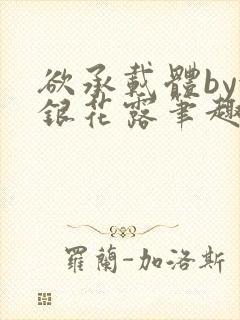 欲承載體by
銀花露筆趣
羅蘭-加洛斯